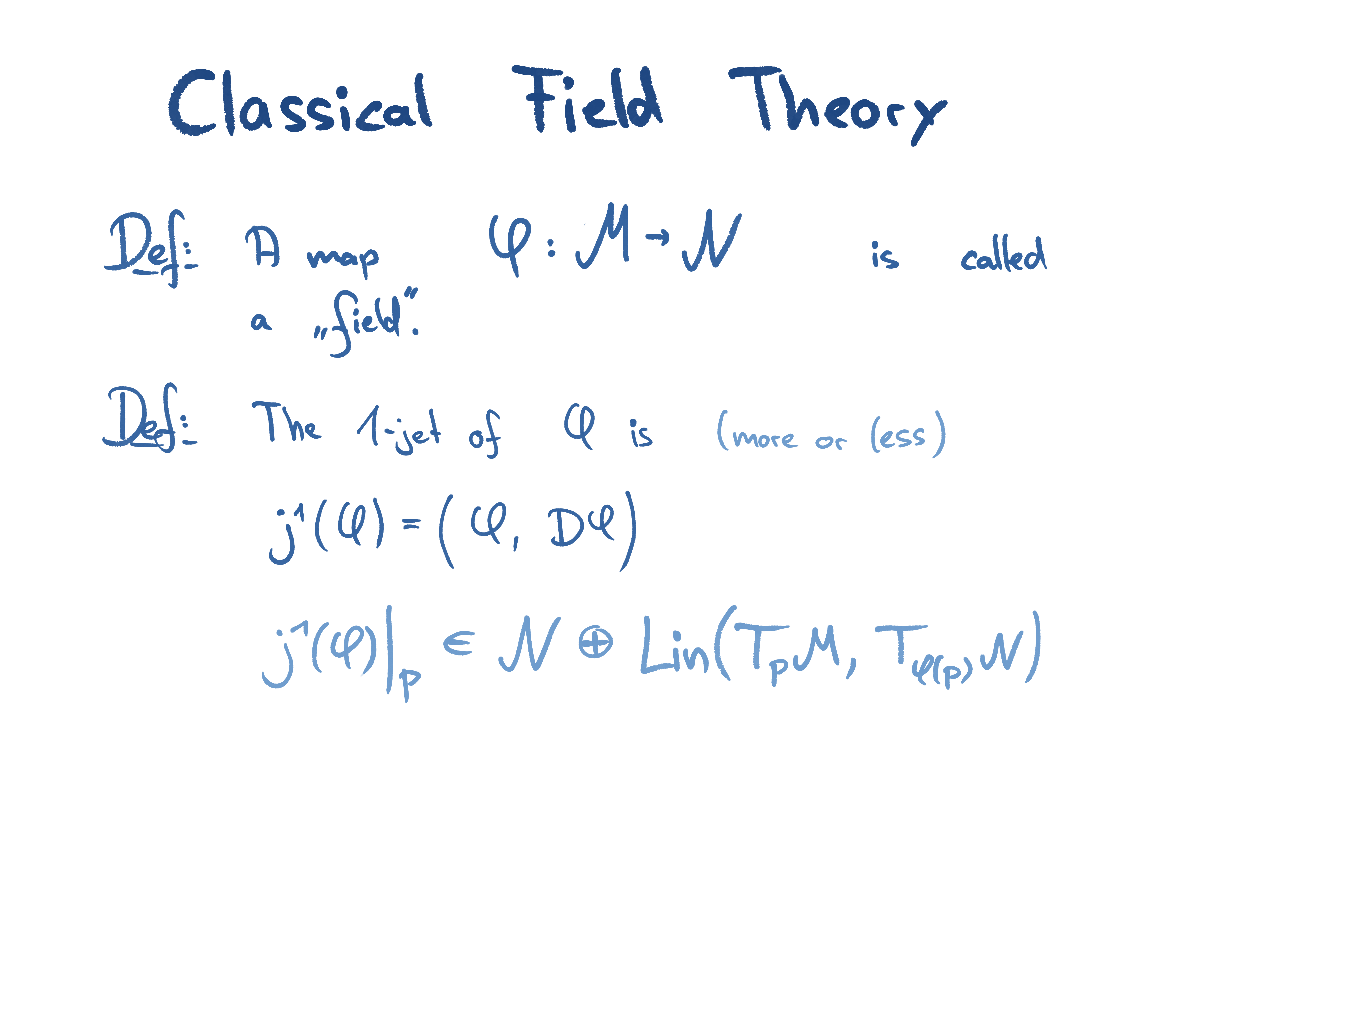 Classical Field Theory
Def: A map φ : M → N is called
a „field".
Def: The 1-jet of φ is (more or less)
j¹(φ) = (φ, Dφ)
j¹(φ)|ₚ ∈ N ⊕ Lin(TₚM, T_φ(p) N)